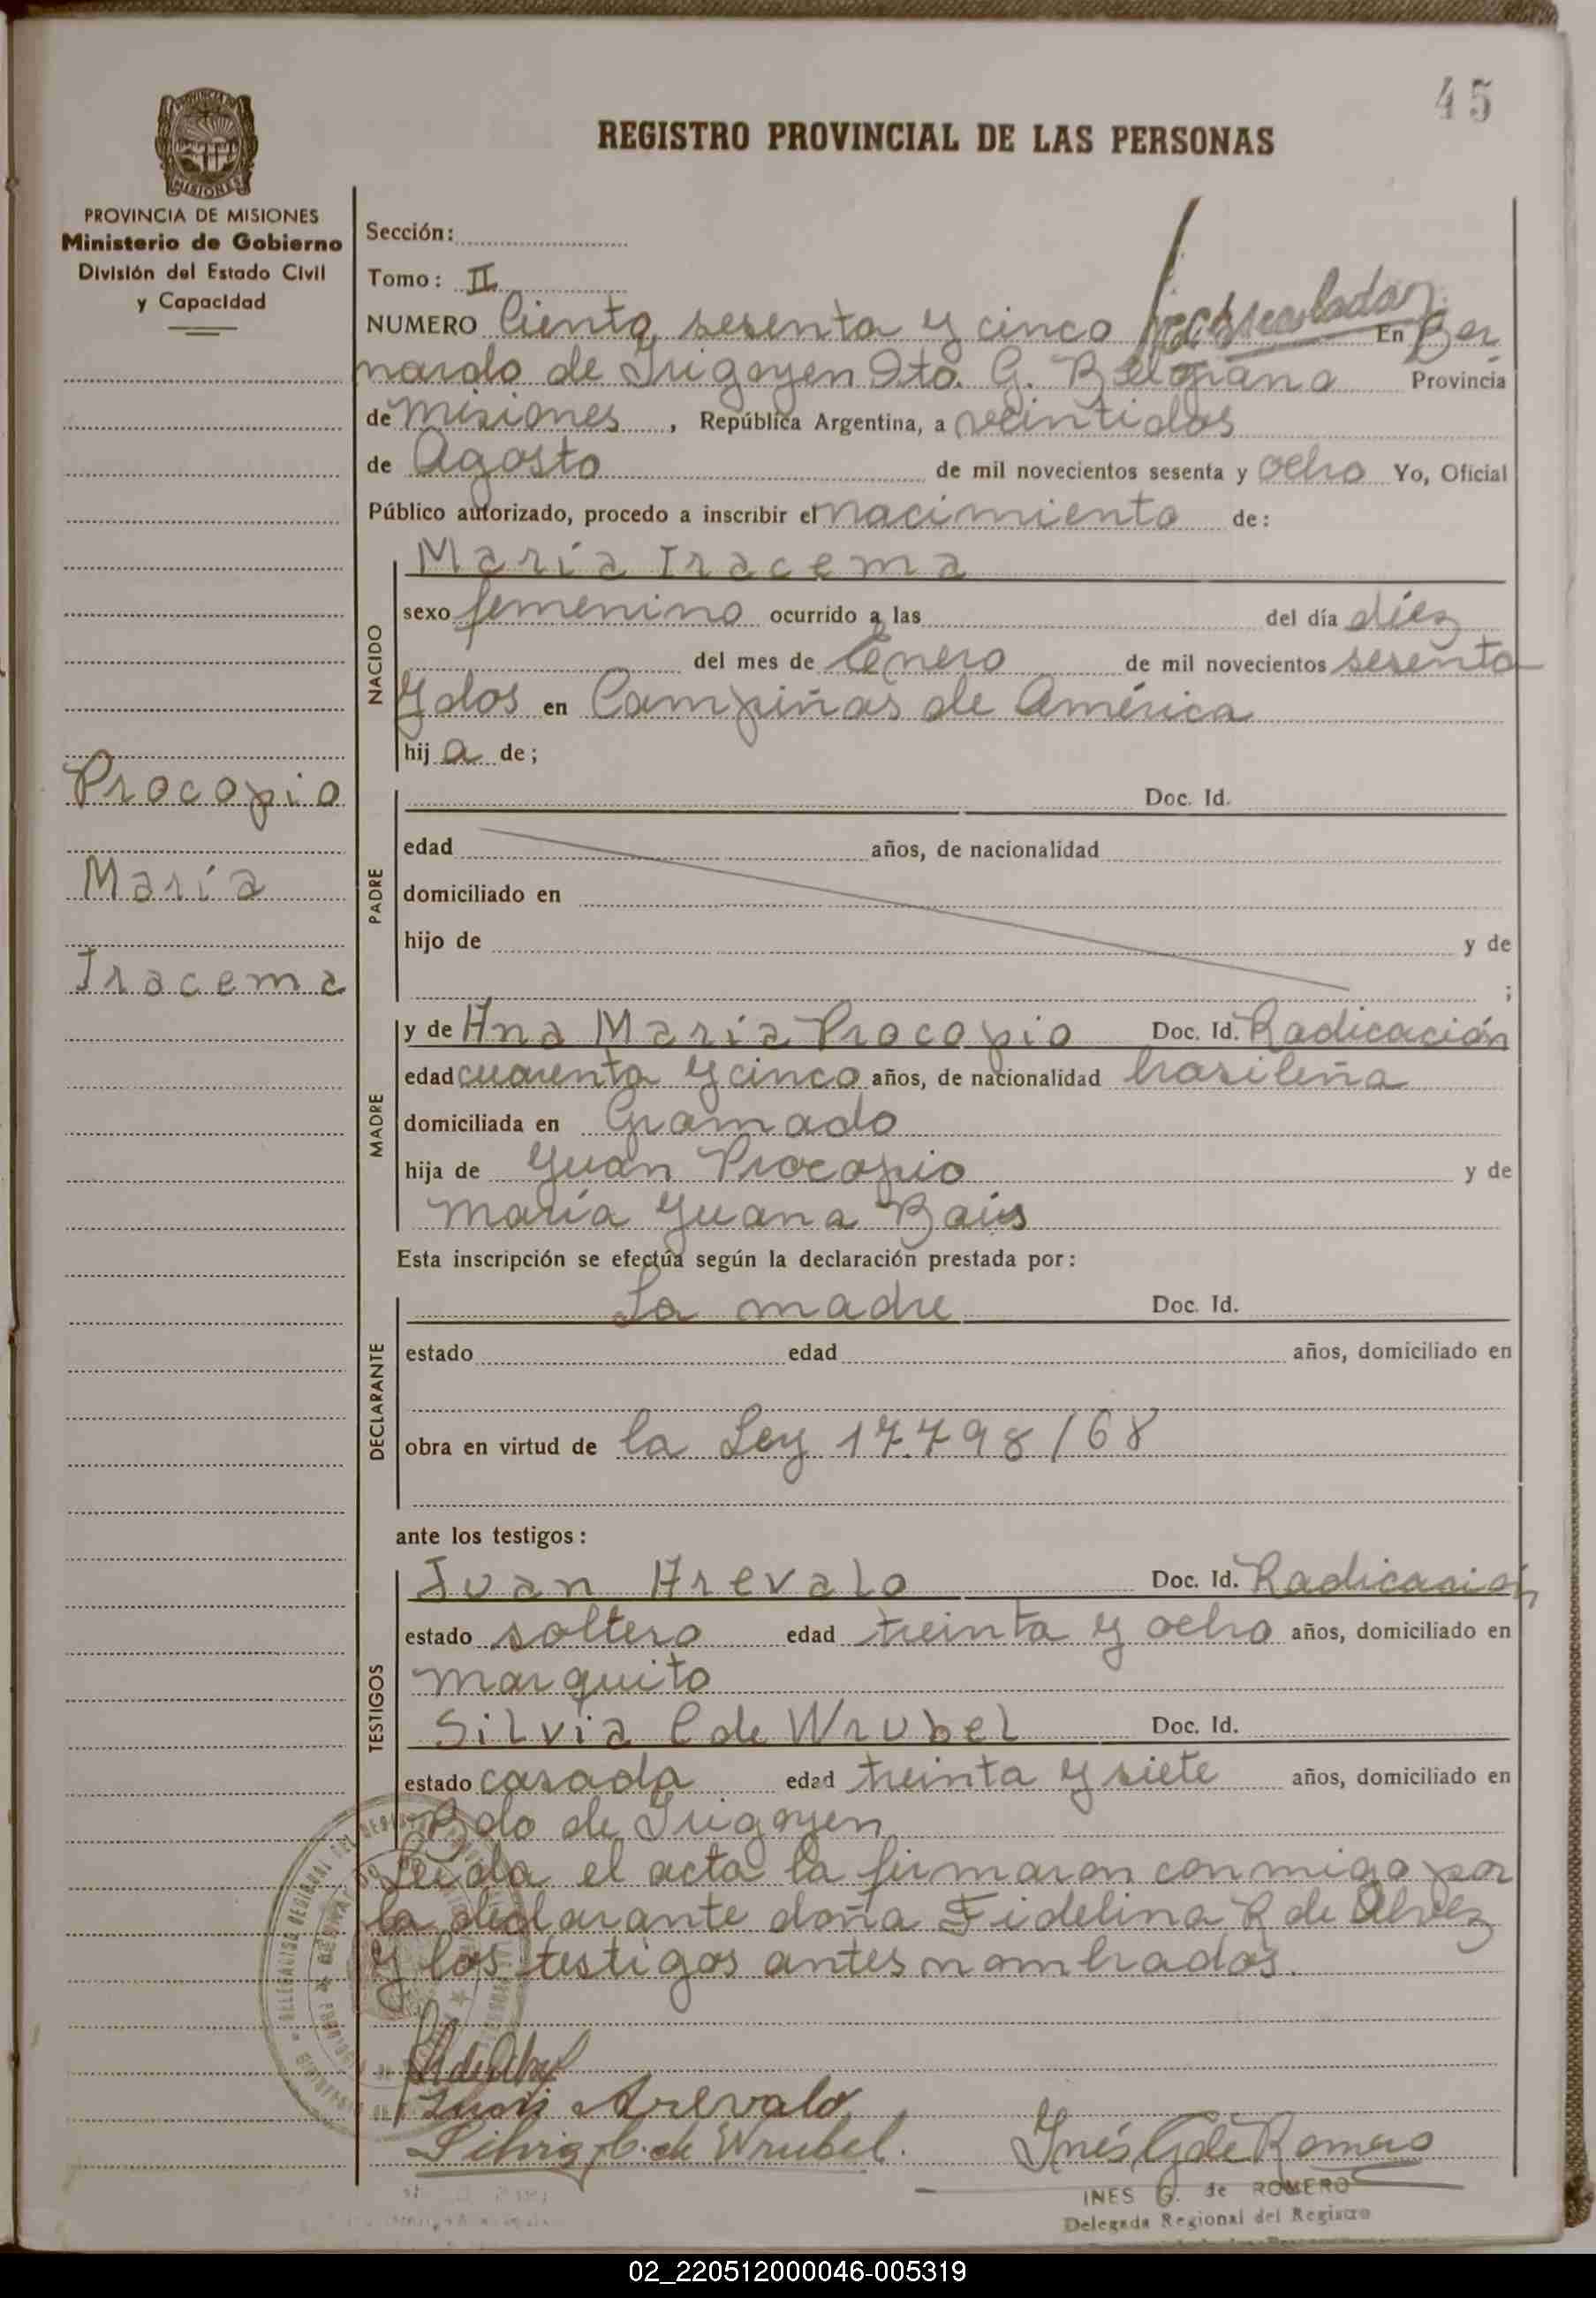 45
REGISTRO PROVINCIAL DE LAS PERSONAS
PROVINCIA DE MISIONES
Ministerio de Gobierno
División del Estado Civil
y Capacidad
Sección:
Tomo: II
NUMERO Ciento sesenta y cinco En Ber
nardo de Irigoyen Dto. G. Belgrano Provincia
de Misiones, República Argentina, a veintidos
de Agosto de mil novecientos sesenta y ocho Yo, Oficial
Público autorizado, procedo a inscribir el nacimiento de:
NACIDO
María Iracema
sexo femenino ocurrido a las del día diez
del mes de Enero de mil novecientos sesenta
y dos en Campiñas de América
hija de;
Procopio
María
Iracema
PADRE
Doc. Id.
edad años, de nacionalidad
domiciliado en
hijo de y de
;
MADRE
y de Ana María Procopio Doc. Id. Radicación
edad cuarenta y cinco años, de nacionalidad brasileña
domiciliada en Gramado
hija de Juan Procopio y de
María Juana Baús
Esta inscripción se efectúa según la declaración prestada por:
DECLARANTE
La madre Doc. Id.
estado edad años, domiciliado en
obra en virtud de la Ley 17.798/68
ante los testigos:
TESTIGOS
Juan Arevalo Doc. Id. Radicación
estado soltero edad treinta y ocho años, domiciliado en
Marquito
Silvia C de Wrubel Doc. Id.
estado casada edad treinta y siete años, domiciliado en
Bdo de Irigoyen
Leida el acta la firmaron conmigo por
la declarante doña Fidelina R de Alvez
y los testigos antes nombrados.
Juan Arevalo
Silvia C. de Wrubel.
Inés G de Romero
INES G. de ROMERO
Delegada Regional del Registro
02_220512000046-005319